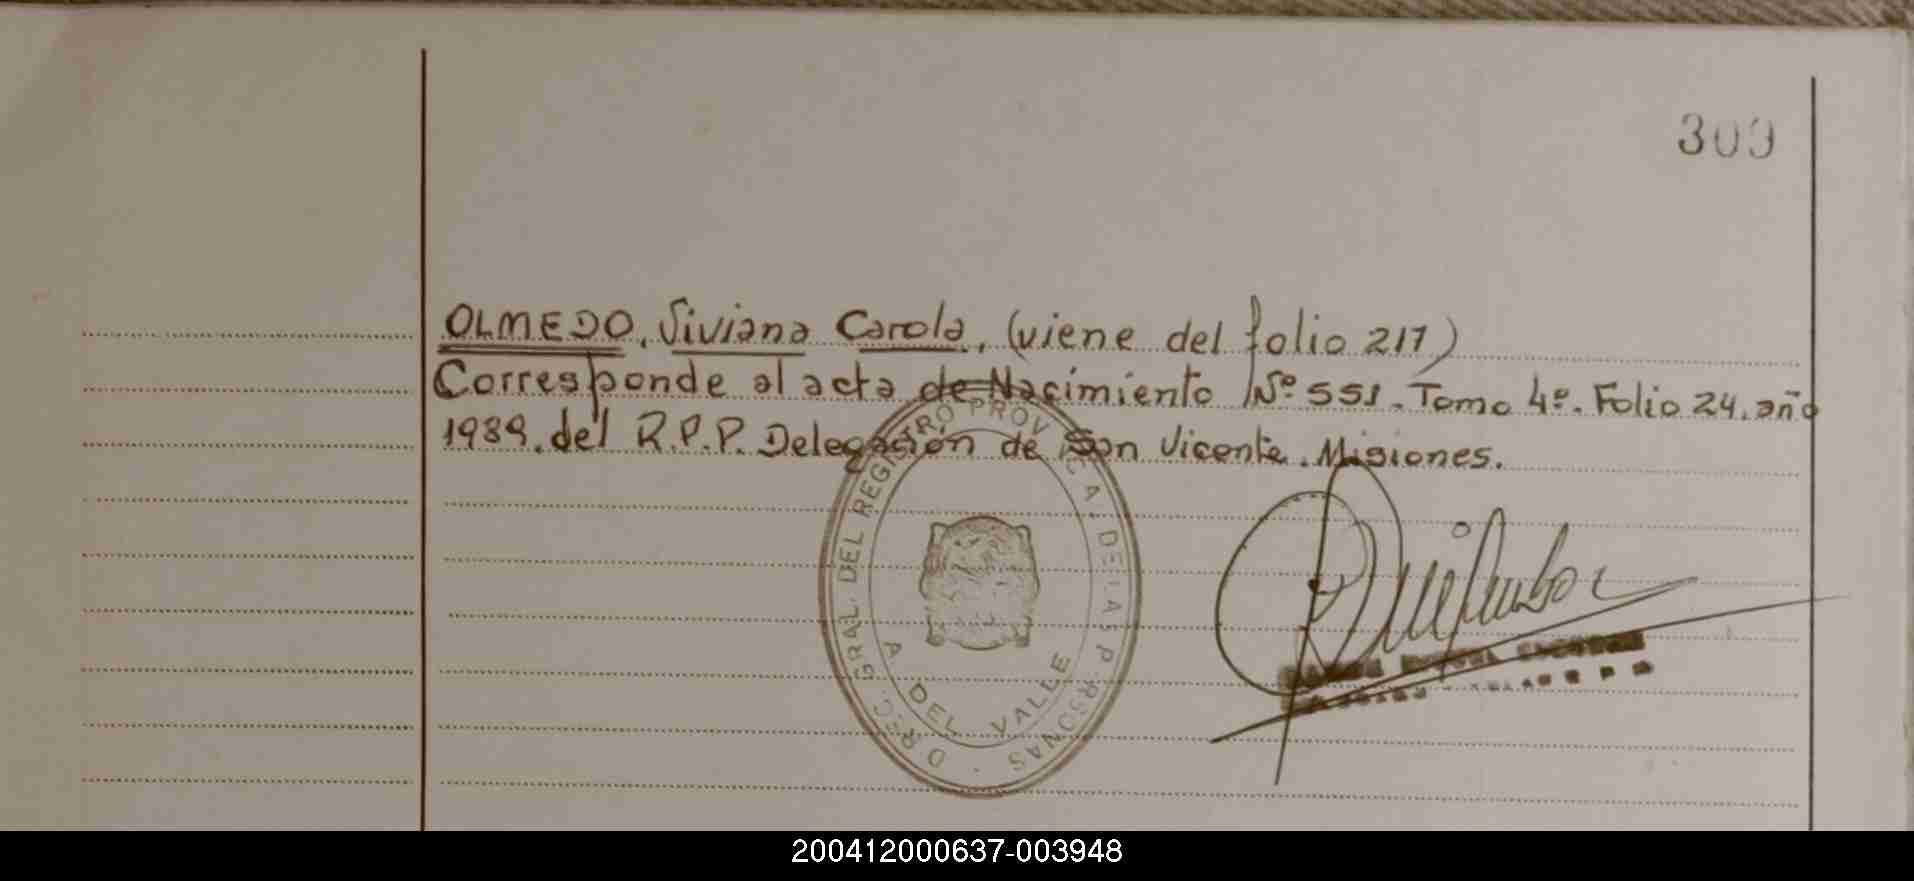 309
OLMEDO, Viviana Carola, (viene del folio 217)
Corresponde al acta de Nacimiento Nº 551. Tomo 4º. Folio 24. año
1989. del R.P.P. Delegación de San Vicente. Misiones.
DREC. GRAL. DEL REGISTRO PROV DE LAS P RSONAS
A DEL VALLE
200412000637-003948